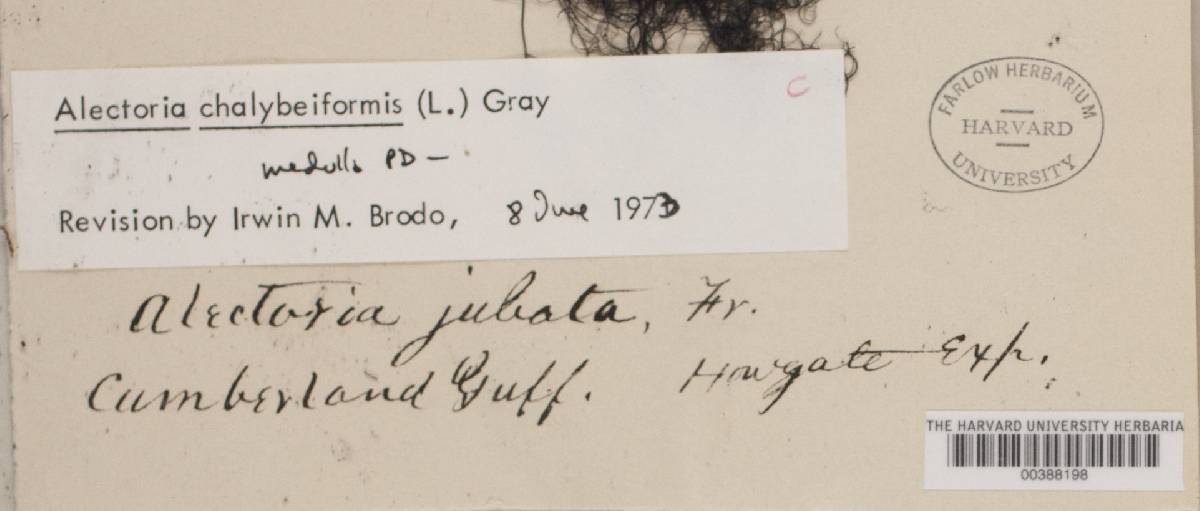 Alectoria chalybeiformis (L.) Gray
C
medulla PD –
Revision by Irwin M. Brodo, 8 June 1973
FARLOW HERBARIUM
HARVARD
UNIVERSITY
Alectoria jubata, Fr.
Cumberland Gulf. Howgate Exp.
THE HARVARD UNIVERSITY HERBARIA
00388198